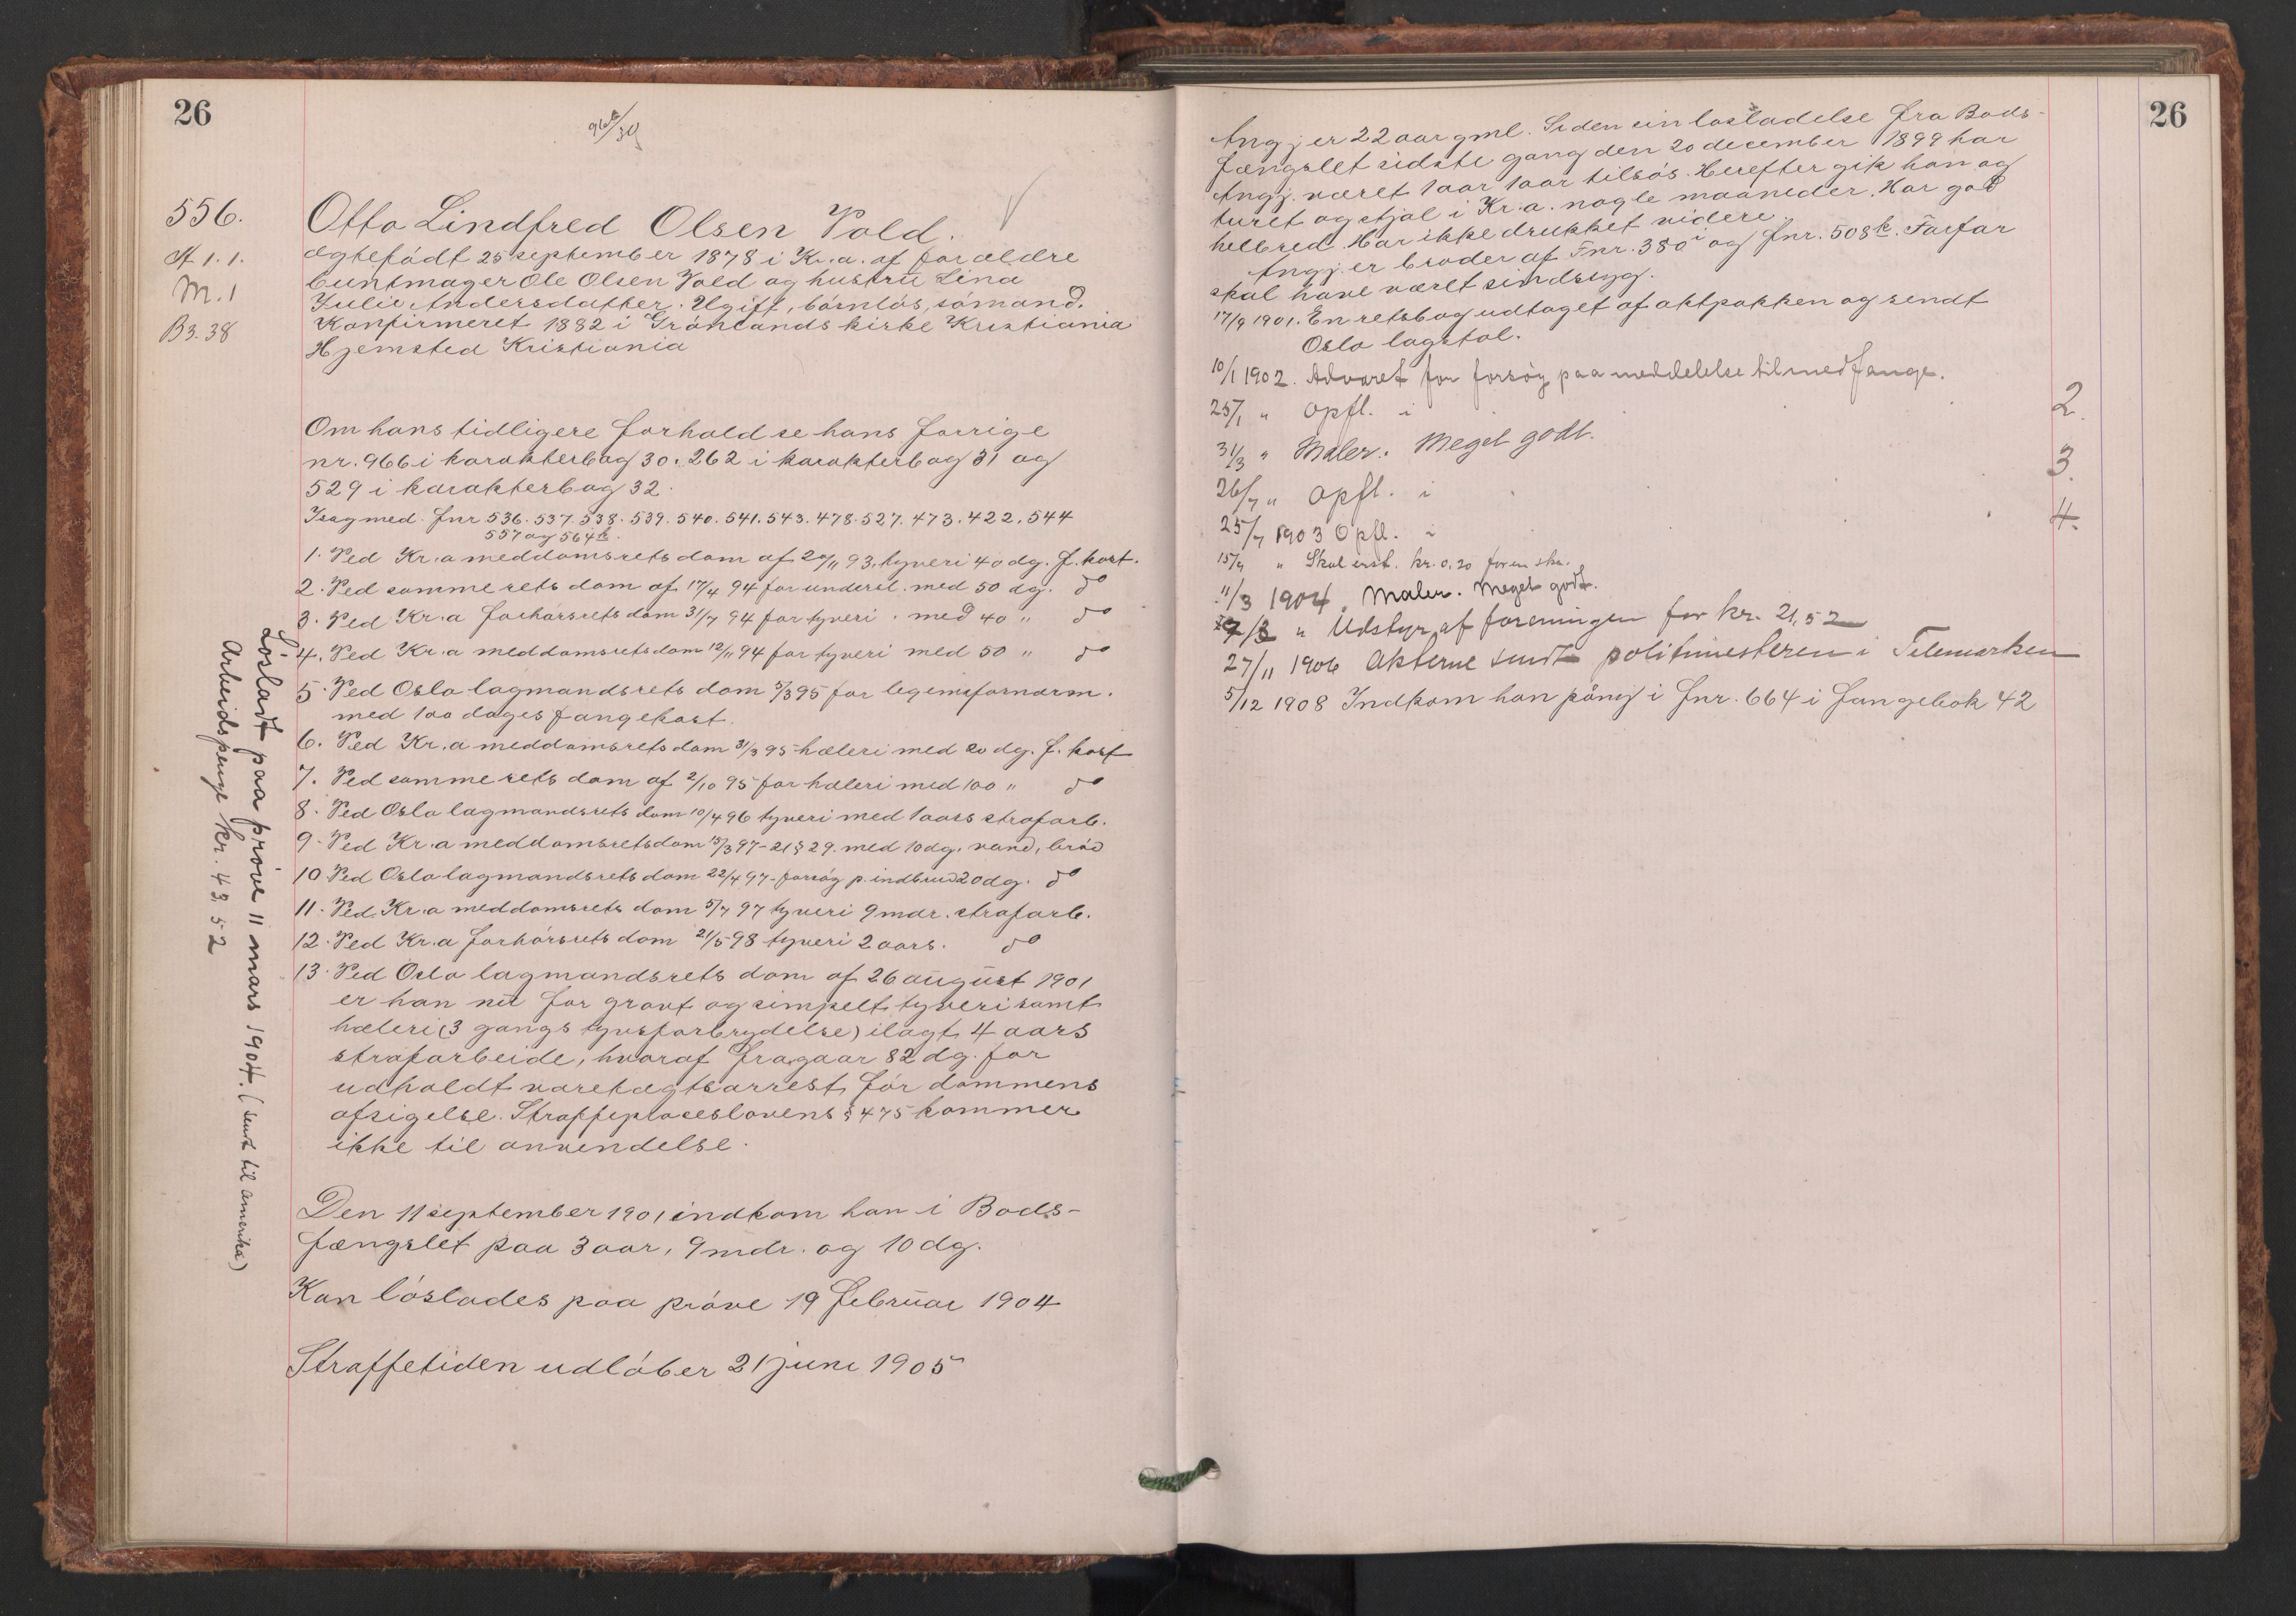 26
966/30
556.
A 1.1.
M.1
B3.38
Otto Lindfred Olsen Vold.
ægtefödt 25 september 1878 i Kr.a. af forældre
buntmager Ole Olsen Vold og hustru Lina
Julie Andersdatter. Ugift, börnlös, sömand.
Konfirmeret 1882 i Grönlands kirke Kristiania
Hjemsted Kristiania
Om hans tidligere forhold se hans forrige
nr. 966 i karakterbog 30. 262 i karakterbog 31 og
529 i karakterbog 32.
I sag med fnr 536. 537. 538. 539. 540. 541. 543. 478. 527. 473. 422. 544
557 og 564
1. Ved Kr.a meddomsrets dom af 29/11 93, tyveri 40 dg. f. kost.
2. Ved samme rets dom af 17/4 94 for undersl. med 50 dg. do
3. Ved Kr.a forhörsrets dom 31/7 94 for tyveri. med 40 " do
4. Ved Kr.a meddomsrets dom 12/11 94 for tyveri med 50 " do
5. Ved Oslo lagmandsrets dom 5/3 95 for legemsfornærm.
med 100 dages fangekost.
6. Ved Kr.a meddomsrets dom 31/3 95 hæleri med 20 dg. f. kost
7. Ved samme rets dom af 2/10 95 for hæleri med 100 " do
8. Ved Oslo lagmandsrets dom 10/4 96 tyveri med 1 aars strafarb.
9. Ved Kr.a meddomsrets dom 15/3 97 - 21 § 29. med 10 dg. vand, bröd
10. Ved Oslo lagmandsrets dom 22/4 97 - forsög p. indbrud 20 dg. do
11. Ved Kr.a meddomsrets dom 5/7 97 tyveri 9 mdr. strafarb.
12. Ved Kr.a forhörsrets dom 21/5 98 tyveri 2 aars. do
13. Ved Oslo lagmandsrets dom af 26 august 1901
er han nu for grovt og simpelt tyveri samt
hæleri (3 gangs tyvsforbrydelse) ilagt 4 aars
strafarbeide, hvoraf fragaar 82 dg. for
udholdt varetægtsarrest för dommens
afsigelse. Straffeproceslovens § 475 kommer
ikke til anvendelse.
Den 11 september 1901 indkom han i Bods-
fængslet paa 3 aar, 9 mdr. og 10 dg.
Kan löslades paa pröve 19 februar 1904
Straffetiden udlöber 21 juni 1905
Lösladt paa pröve 11 mars 1904. (sendt til amerika)
Arbeidspenge kr. 43.52
26
Angj. er 22 aar gml. Siden sin losladelse fra Bods-
fængslet sidste gang den 20 december 1899 har
Angj. været 1 aar 1 aar tilsös. Herefter gik han og
turet og stjal i Kr.a. nogle maaneder. Har god
helbred. Har ikke drukket videre.
Angj. er broder af Fnr. 380 i og fnr. 508 k. Farfar
skal have været sindssyg.
17/9 1901. En retsbog udtaget af aktpakken og sendt
Oslo lagstol.
10/1 1902. Advaret for forsög paa meddelelse til medfange.
25/1 " Opfl. i 2.
31/3 " Maler. Meget godt.
26/7 " Opfl. i 3.
25/7 1903 Opfl. i 4.
15/9 " Skal erst. kr. 0,20 for en ske.
11/3 1904. Maler. Meget godt.
27/3 " Udstyr af foreningen for kr. 21,52
27/11 1906 Akterne sendt politimesteren i Telemarken
5/12 1908 Indkom han påny i fnr. 664 i Fangebok 42